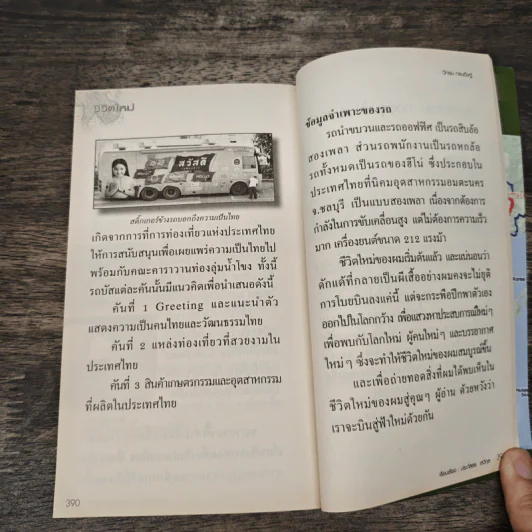 ชีวิตใหม่
สวัสดี
สติ๊กเกอร์ข้างรถบอกถึงความเป็นไทย
เกิดจากการที่การท่องเที่ยวแห่งประเทศไทย
ให้การสนับสนุนเพื่อเผยแพร่ความเป็นไทยไป
พร้อมกับคณะคาราวานท่องลุ่มน้ำโขง ทั้งนี้
รถบัสแต่ละคันนั้นมีแนวคิดเพื่อนำเสนอดังนี้
คันที่ 1 Greeting และแนะนำตัว
แสดงความเป็นคนไทยและวัฒนธรรมไทย
คันที่ 2 แหล่งท่องเที่ยวที่สวยงามใน
ประเทศไทย
คันที่ 3 สินค้าเกษตรกรรมและอุตสาหกรรม
ที่ผลิตในประเทศไทย
390
วิกรม กรมดิษฐ์
ข้อมูลจำเพาะของรถ
รถนำขบวนและรถออฟฟิศ เป็นรถสิบล้อ
สองเพลา ส่วนรถพนักงานเป็นรถหกล้อ
รถทั้งหมดเป็นรถของฮีโน่ ซึ่งประกอบใน
ประเทศไทยที่นิคมอุตสาหกรรมอมตะนคร
จ.ชลบุรี เป็นแบบสองเพลา เนื่องจากต้องการ
กำลังในการขับเคลื่อนสูง แต่ไม่ต้องการความเร็ว
มาก เครื่องยนต์ขนาด 212 แรงม้า
ชีวิตใหม่ของผมเริ่มต้นแล้ว และแน่นอนว่า
ดักแด้ที่กลายเป็นผีเสื้ออย่างผมคงจะไม่ยุติ
การโบยบินลงแค่นี้ แต่จะกระพือปีกพาตัวเอง
ออกไปในโลกกว้าง เพื่อแสวงหาประสบการณ์ใหม่ๆ
เพื่อพบกับโลกใหม่ ผู้คนใหม่ๆ และบรรยากาศ
ใหม่ๆ ซึ่งจะทำให้ชีวิตใหม่ของผมสมบูรณ์ขึ้น
และเพื่อถ่ายทอดสิ่งที่ผมได้พบเห็นใน
ชีวิตใหม่ของผมสู่คุณๆ ผู้อ่าน ด้วยหวังว่า
เราจะบินสู่ฟ้าใหม่ด้วยกัน
เรียบเรียง : ประวิทย์